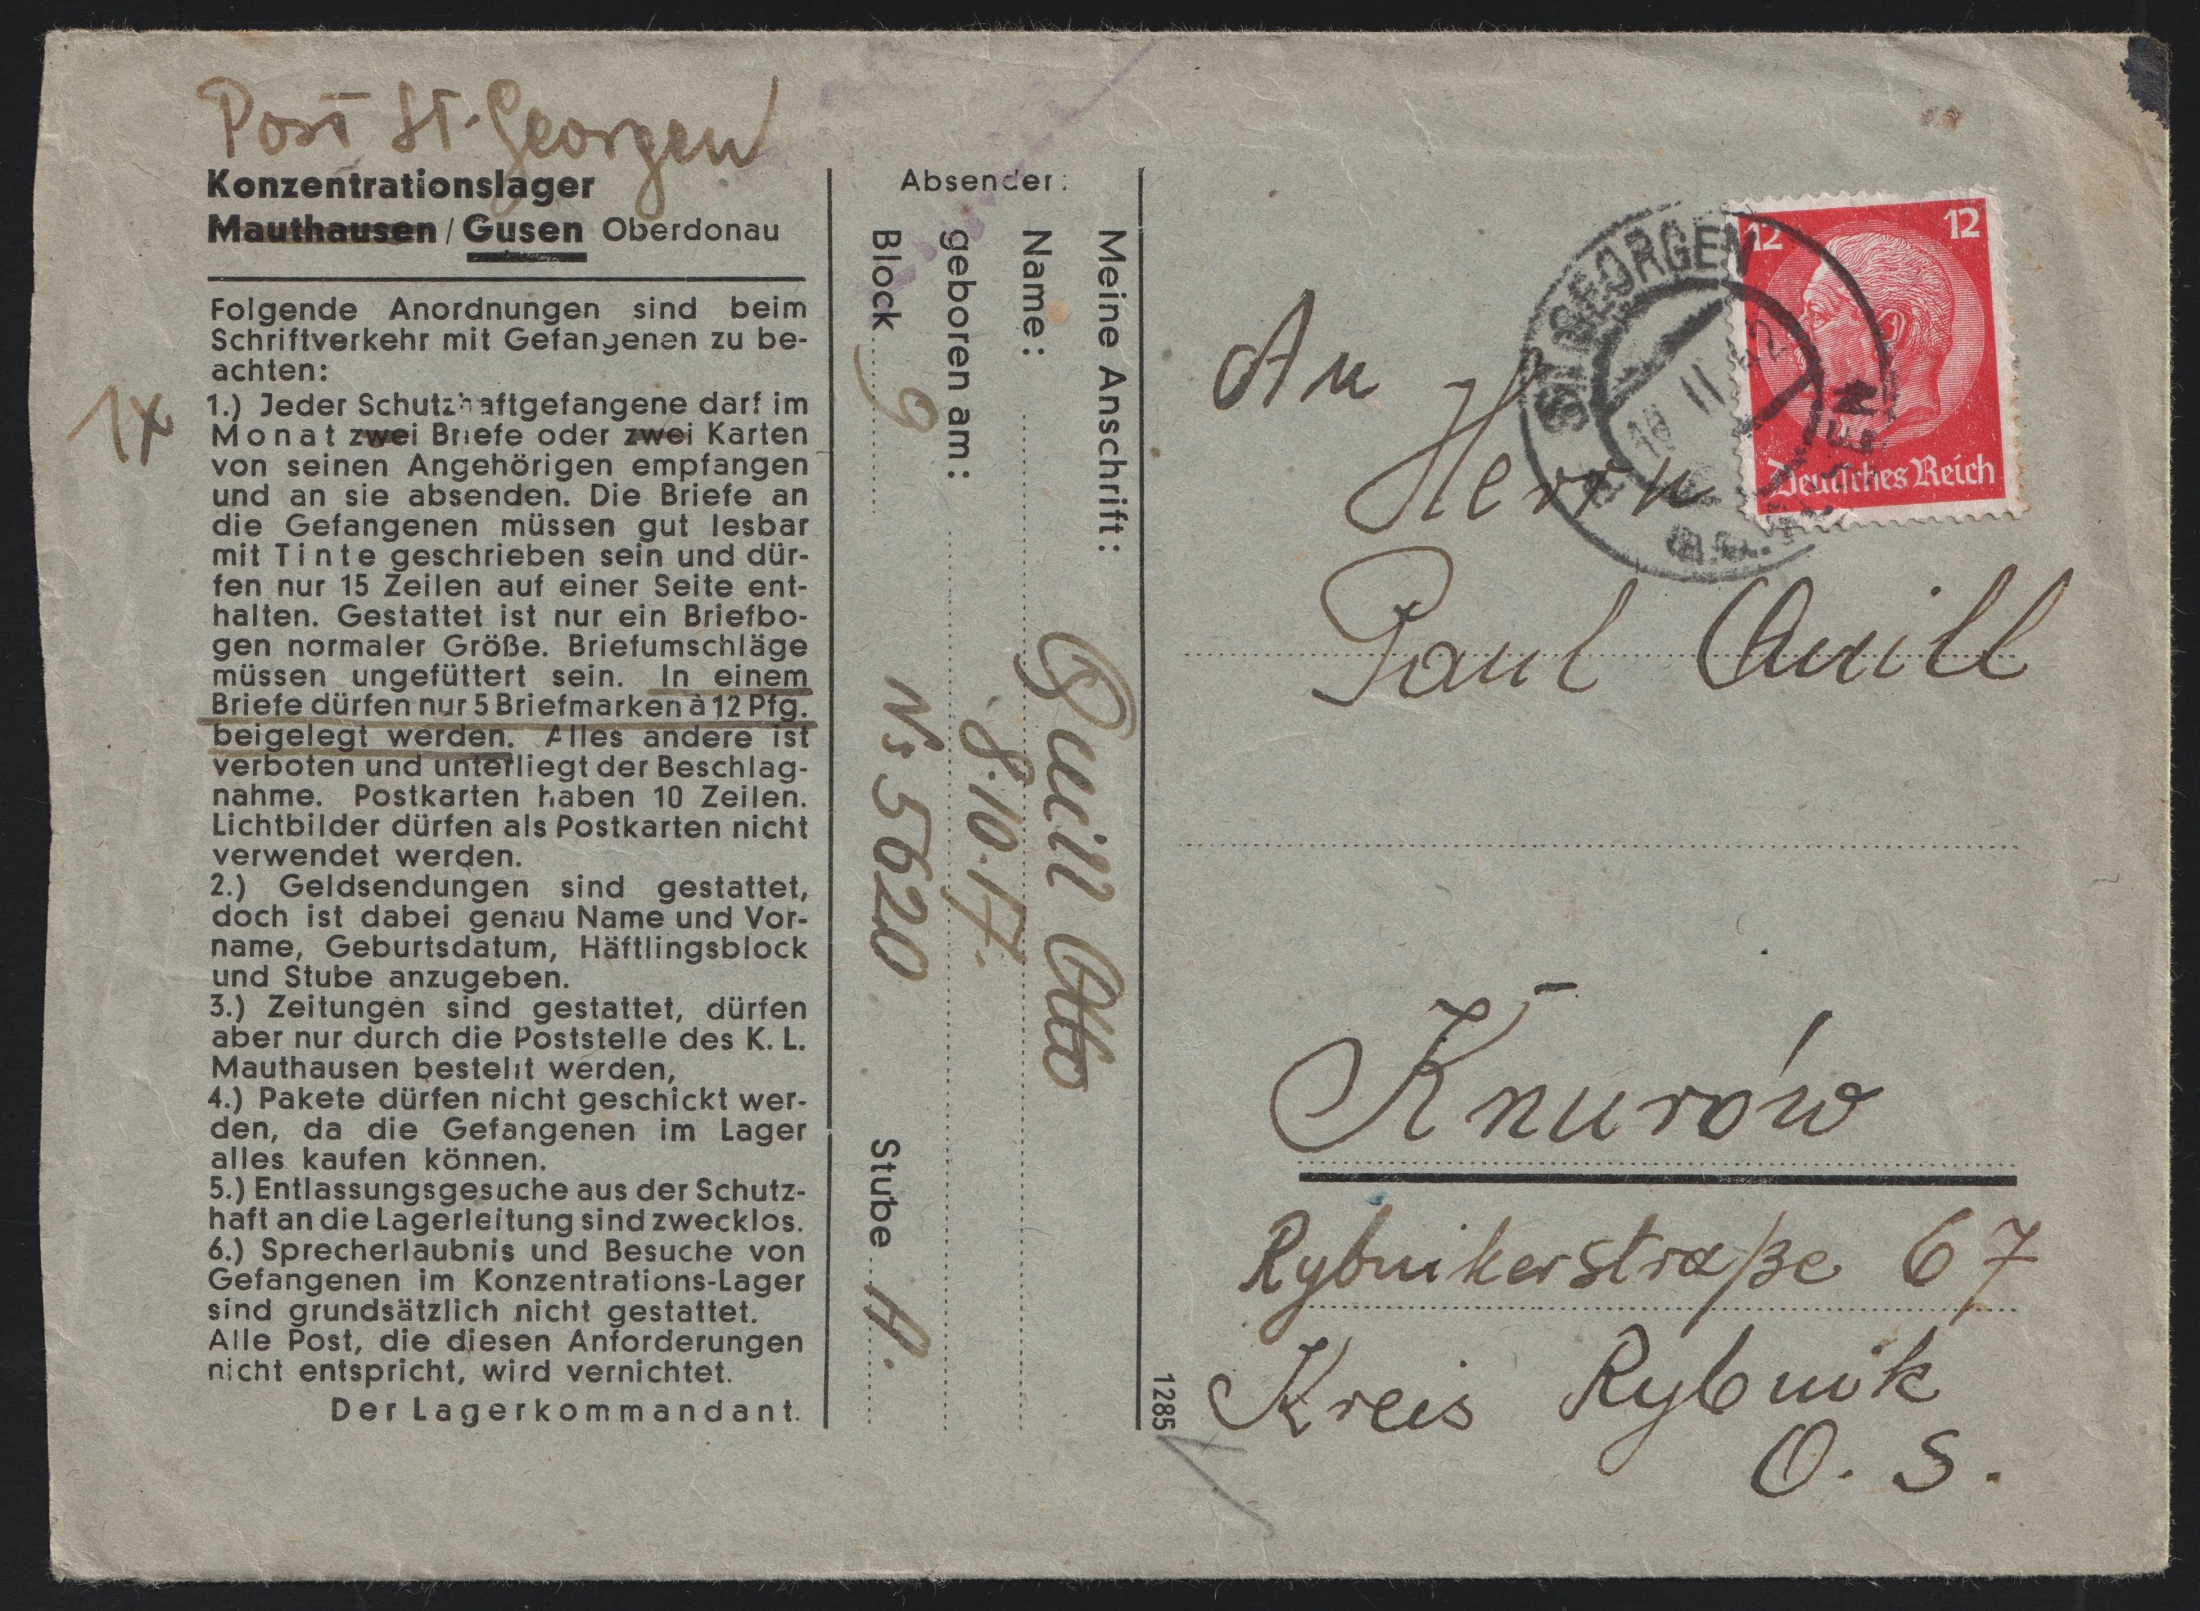 Post St. Georgen
Konzentrationslager
Mauthausen / Gusen Oberdonau
Folgende Anordnungen sind beim
Schriftverkehr mit Gefangenen zu be-
achten:
1x
1.) Jeder Schutzhaftgefangene darf im
Monat zwei Briefe oder zwei Karten
von seinen Angehörigen empfangen
und an sie absenden. Die Briefe an
die Gefangenen müssen gut lesbar
mit Tinte geschrieben sein und dür-
fen nur 15 Zeilen auf einer Seite ent-
halten. Gestattet ist nur ein Briefbo-
gen normaler Größe. Briefumschläge
müssen ungefüttert sein. In einem
Briefe dürfen nur 5 Briefmarken à 12 Pfg.
beigelegt werden. Alles andere ist
verboten und unterliegt der Beschlag-
nahme. Postkarten haben 10 Zeilen.
Lichtbilder dürfen als Postkarten nicht
verwendet werden.
2.) Geldsendungen sind gestattet,
doch ist dabei genau Name und Vor-
name, Geburtsdatum, Häftlingsblock
und Stube anzugeben.
3.) Zeitungen sind gestattet, dürfen
aber nur durch die Poststelle des K. L.
Mauthausen bestellt werden,
4.) Pakete dürfen nicht geschickt wer-
den, da die Gefangenen im Lager
alles kaufen können.
5.) Entlassungsgesuche aus der Schutz-
haft an die Lagerleitung sind zwecklos.
6.) Sprecherlaubnis und Besuche von
Gefangenen im Konzentrations-Lager
sind grundsätzlich nicht gestattet.
Alle Post, die diesen Anforderungen
nicht entspricht, wird vernichtet.
Der Lagerkommandant.
Absender:
Meine Anschrift:
Name: Otto
geboren am: 8.10.17.
Block 9 Nr 5620 Stube A.
1285
12 12
Deutsches Reich
ST. GEORGEN
An
Herrn
Paul
Knurów
Rybnikerstraße 67
Kreis Rybnik
O. S.